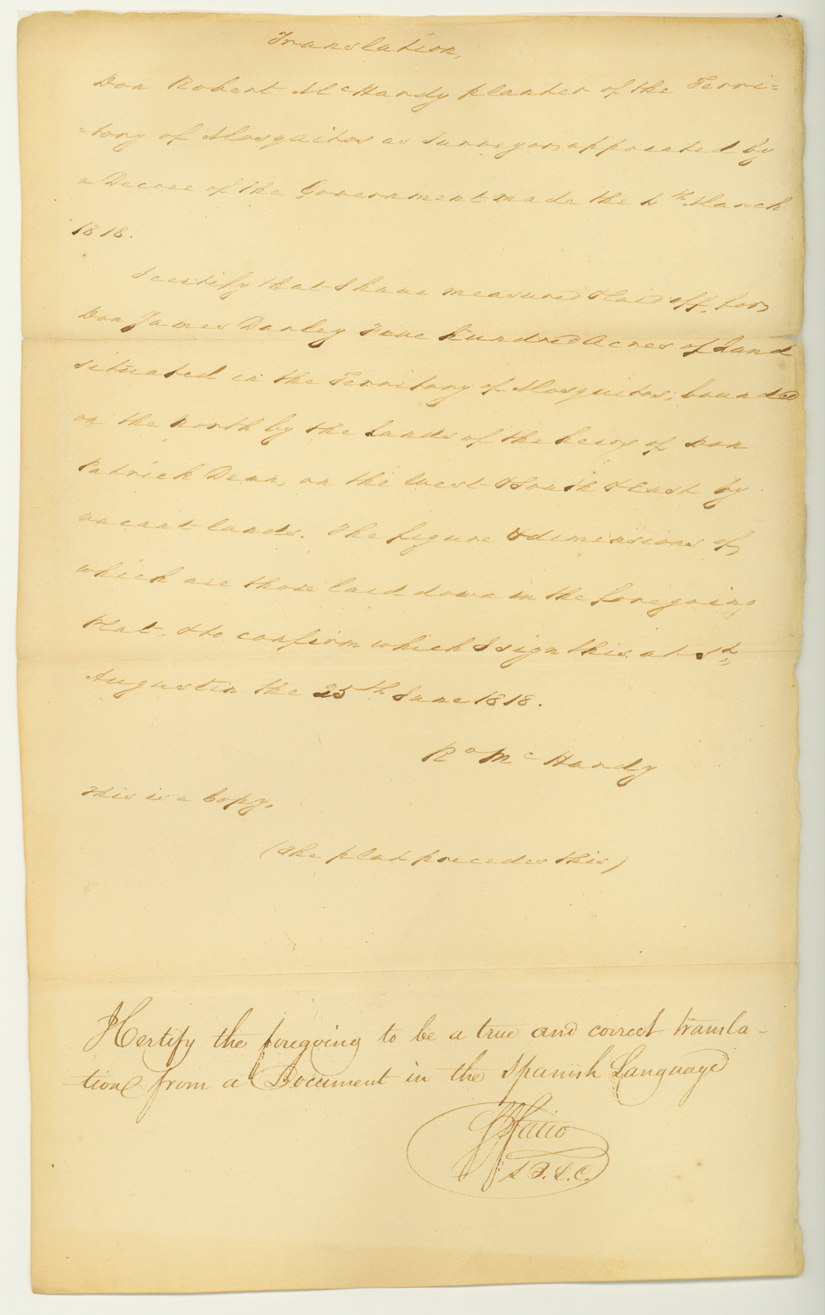 Translation,
Don Robert McHardy planter of the Terri=
=tory of Mosquitos as Surveyor appointed by
a Decree of the Government made the 4th March
1818.
I certify that I have measured & laid off, for
Don James Darley Five hundred Acres of Land
situated in the Territory of Mosquitos, bounded
on the north by the lands of the heirs of Don
Patrick Dean, on the West & South & East by
vacant lands. The figure & dimensions of
which are those laid down in the foregoing
Plat, & to confirm which I sign this at St
Augustin the 25th June 1818.
Ro McHardy
This is a Copy,
(The plat precedes this)
I Certify the foregoing to be a true and correct transla-
tion from a Document in the Spanish Language